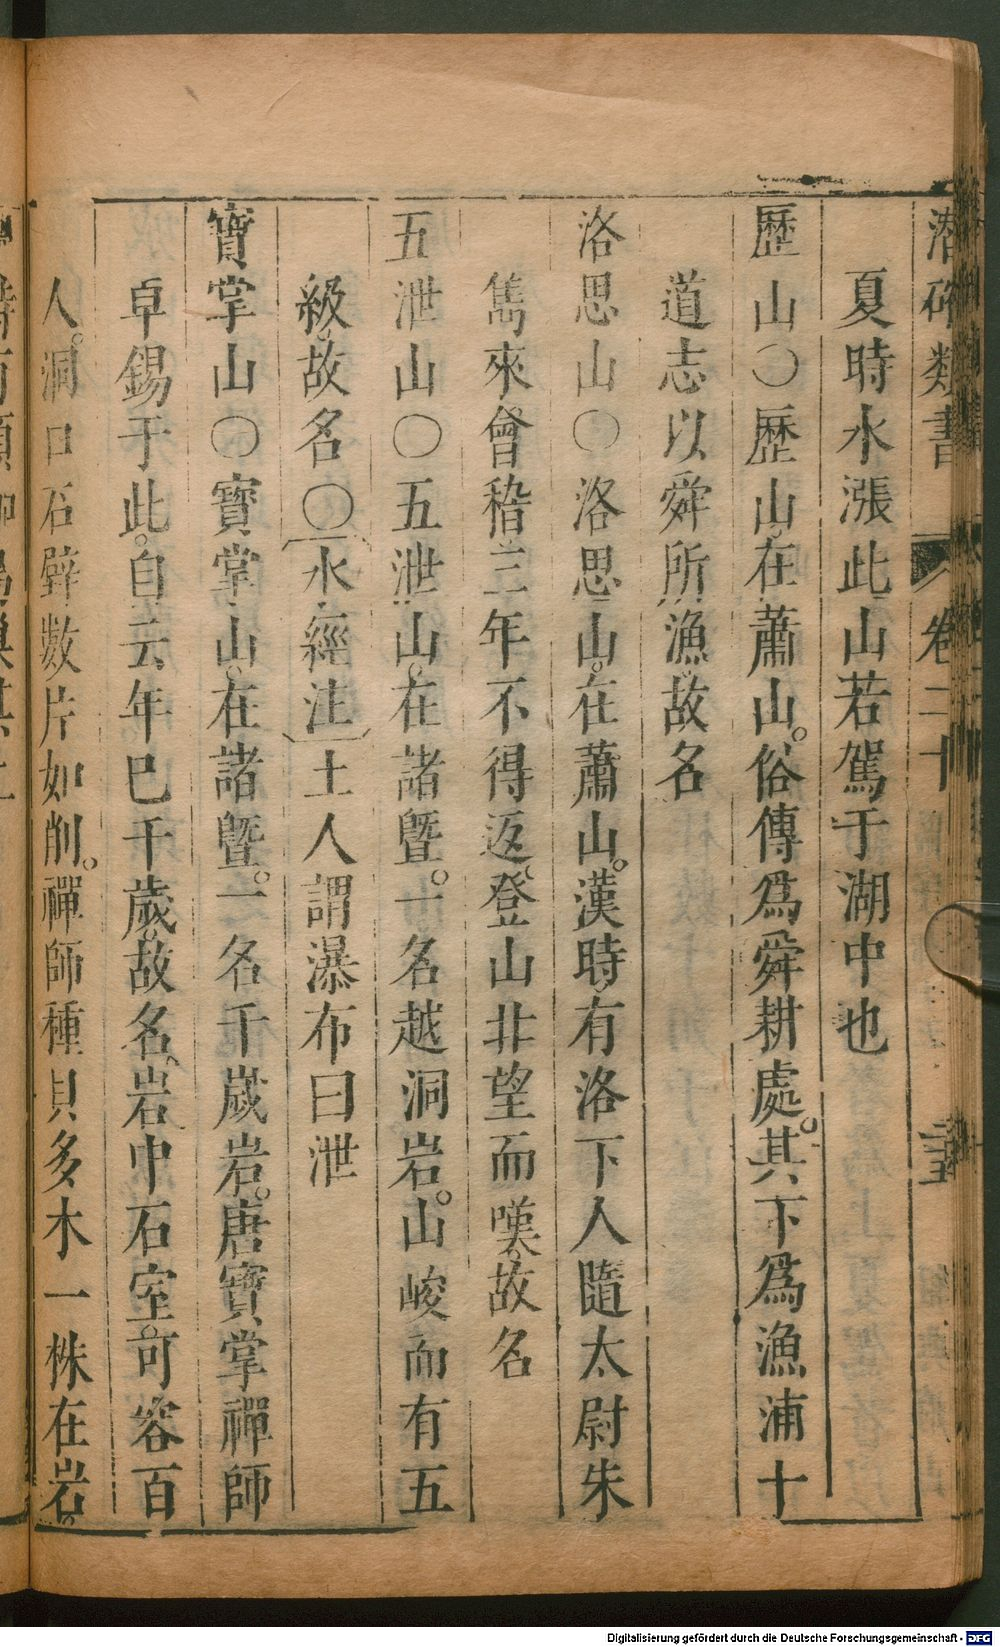 潛確類書 卷二十
夏時水漲此山若駕于湖中也
歷山〇歷山。在蕭山。俗傳爲舜耕處。其下爲漁浦十
道志以舜所漁故名
洛思山〇洛思山。在蕭山。漢時有洛下人隨太尉朱
雋來會稽三年不得返。登山非望而嘆。故名
五泄山〇五泄山。在諸暨。一名越洞岩。山峻而有五
級。故名〇水經注土人謂瀑布曰泄
寶掌山〇寶掌山。在諸暨。一名千歲岩。唐寶掌禪師
卓錫于此。自云年巳千歲。故名。岩中石室。可容百
人。洞口石壁數片如削。禪師種貝多木一株在岩。
Digitalisierung gefördert durch die Deutsche Forschungsgemeinschaft - DFG